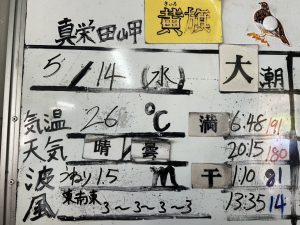 真栄田岬 きいろ 黄旗
5/14(水) 大潮
気温 26℃ 満 6:48 191
天気 晴 曇 20:15 180
波 うねり 1.5 m 干 1:10 81
風 東南東 3～3～3～3 13:35 14